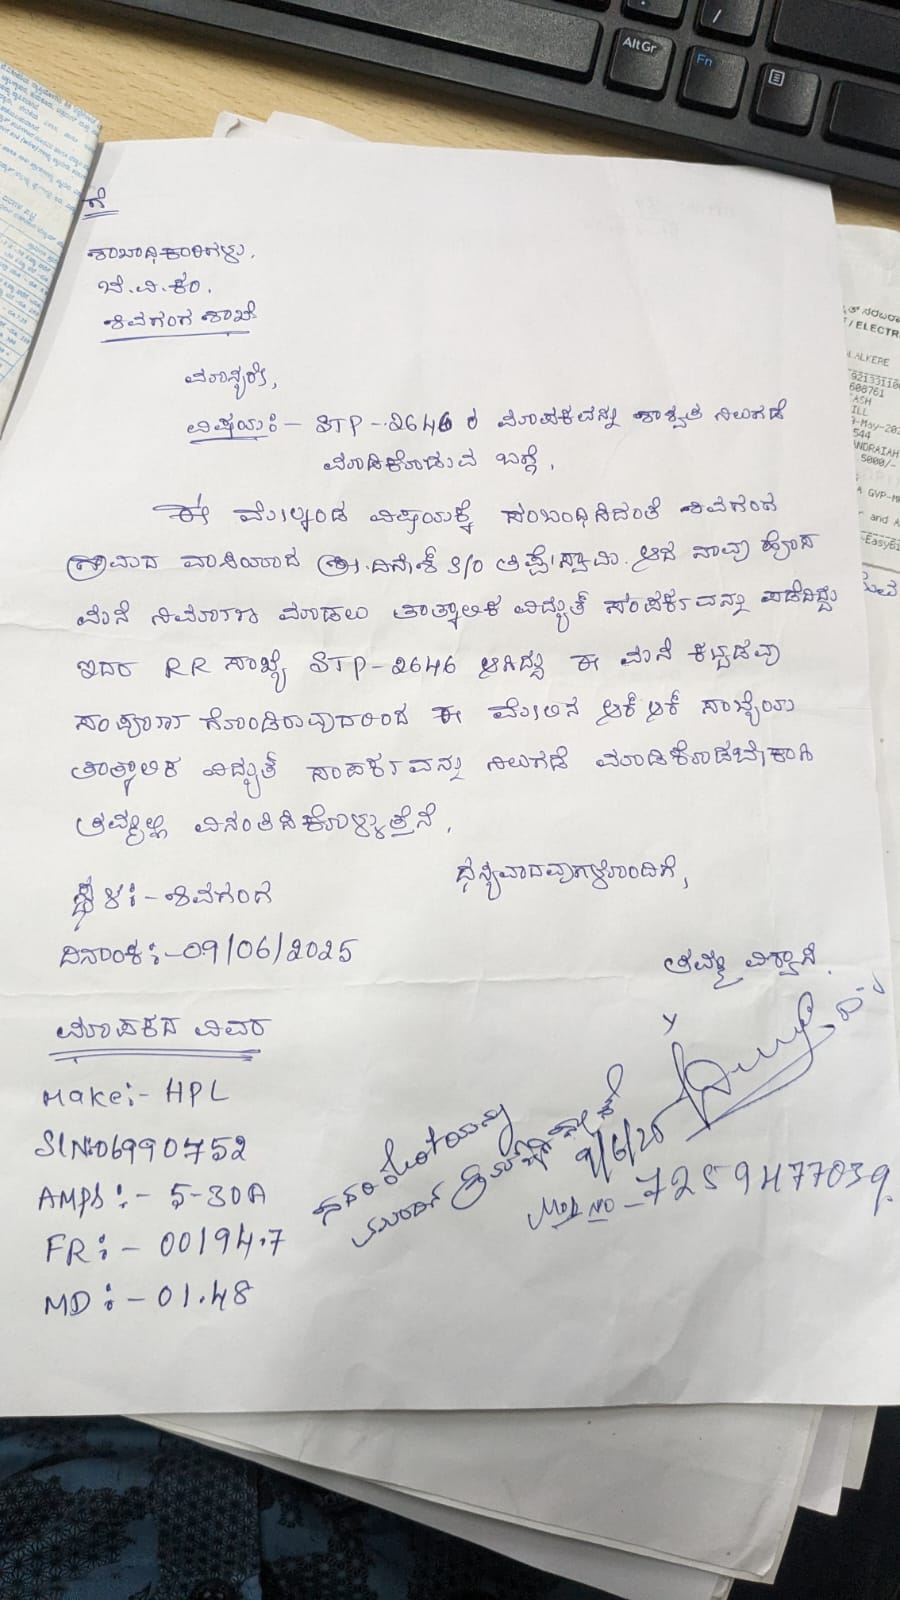 ಗೆ
ಶಾಖಾಧಿಕಾರಿಗಳು.
ಬೆ.ವಿ.ಕಂ.
ಶಿವಗಂಗ ಶಾಖೆ
ಮಾನ್ಯರೇ,
ವಿಷಯ:- STP-2646 ರ ಮಾಪಕವನ್ನು ಶಾಶ್ವತ ನಿಲುಗಡೆ
ಮಾಡಿಕೊಡುವ ಬಗ್ಗೆ.
ಈ ಮೇಲ್ಕಂಡ ವಿಷಯಕ್ಕೆ ಸಂಬಂಧಿಸಿದಂತೆ ಶಿವಗಂಗ
ಗ್ರಾಮದ ವಾಸಿಯಾದ ಶ್ರೀ.ದಿನೇಶ್ S/O ತಿಪ್ಪೇಸ್ವಾಮಿ. ಆದ ನಾವು ಹೊಸ
ಮನೆ ನಿರ್ಮಾಣ ಮಾಡಲು ತಾತ್ಕಾಲಿಕ ವಿದ್ಯುತ್ ಸಂಪರ್ಕವನ್ನು ಪಡೆದಿದ್ದು
ಇದರ RR ಸಂಖ್ಯೆ STP-2646 ಆಗಿದ್ದು ಈ ಮನೆ ಕಟ್ಟಡವು
ಸಂಪೂರ್ಣ ಗೊಂಡಿರುವುದರಿಂದ ಈ ಮೇಲಿನ ಆರ್ ಆರ್ ಸಂಖ್ಯೆಯ
ತಾತ್ಕಾಲಿಕ ವಿದ್ಯುತ್ ಸಂಪರ್ಕವನ್ನು ನಿಲುಗಡೆ ಮಾಡಿಕೊಡಬೇಕಾಗಿ
ತಮ್ಮಲ್ಲಿ ವಿನಂತಿಸಿಕೊಳ್ಳುತ್ತೇನೆ.
ಧನ್ಯವಾದವುಗಳೊಂದಿಗೆ,
ಸ್ಥಳ:- ಶಿವಗಂಗ
ದಿನಾಂಕ:-09/06/2025
ತಮ್ಮ ವಿಶ್ವಾಸಿ.
ಮಾಪಕದ ವಿವರ
Make:- HPL
Sl No:06990752
AMPS:- 5-30A
FR:- 00194.7
MD:- 01.48
9/6/25
Mob NO - 7259477039.
AltGr
Fn
/ ELECTR
ALKERE
608761
ASH
544
5000/-